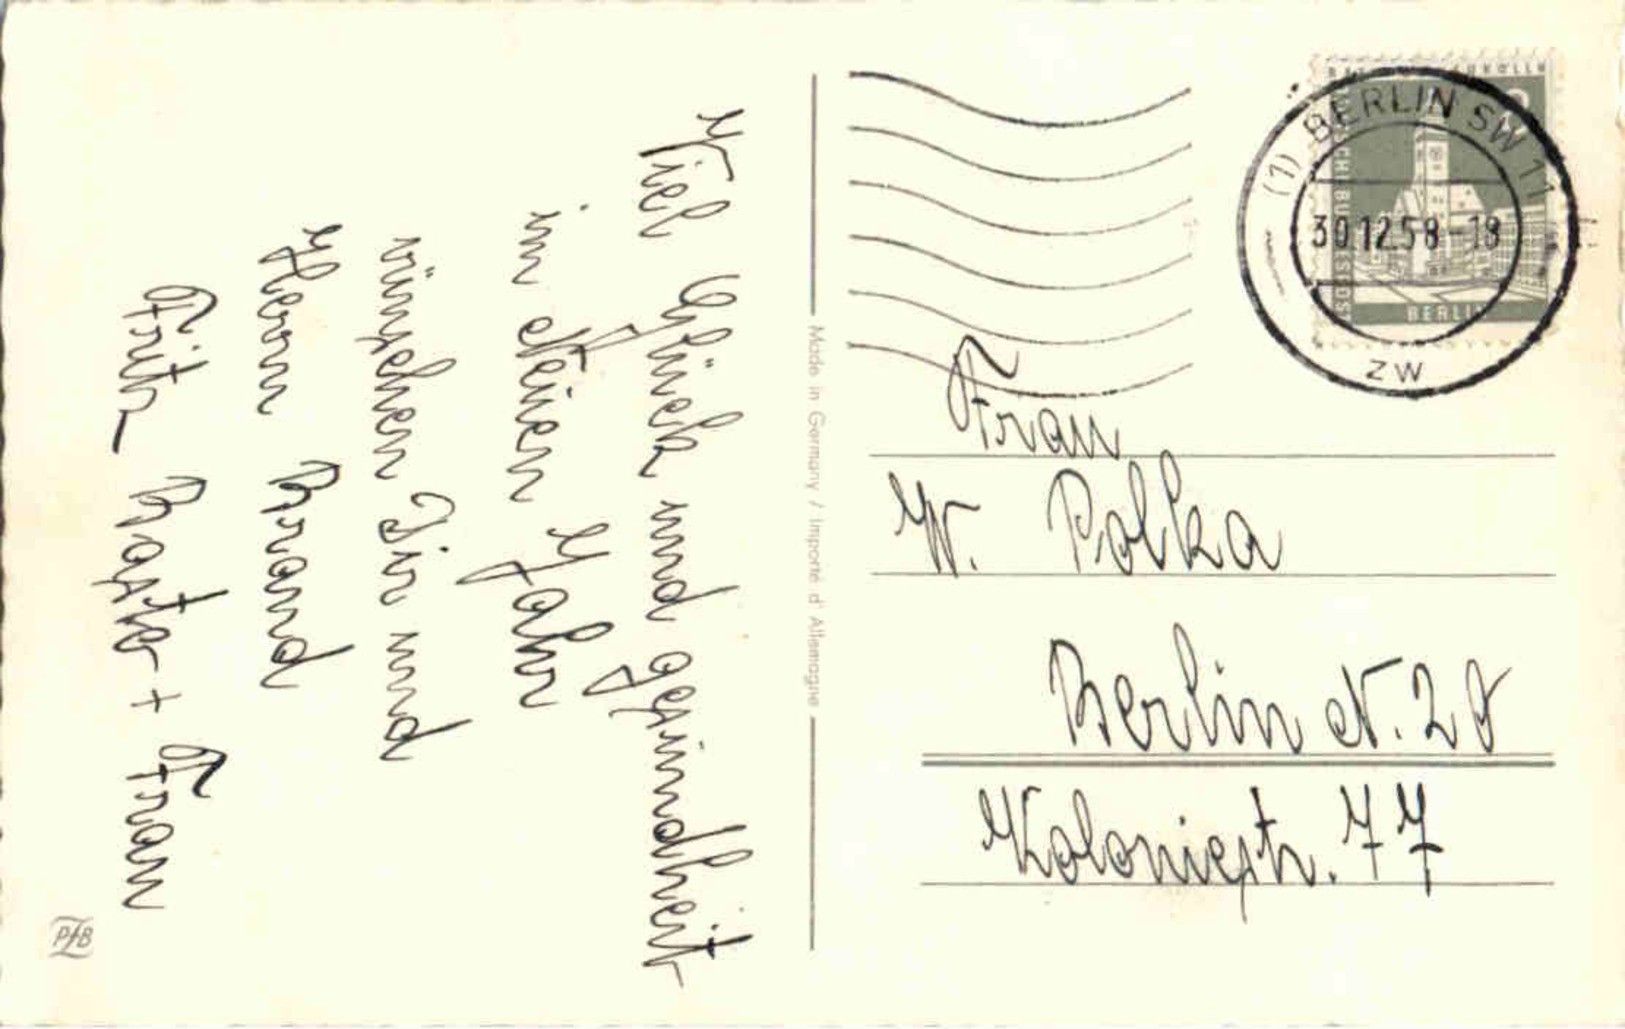 Viel Glück und gesundheit
im Neuen Jahr
wünschen Dir und
Herrn Brand
Fritz + Frau
PfB
Made in Germany / Importé d'Allemagne
(1) BERLIN SW 11
30.12.58-18
ZW
BERLIN
Frau
W. Polka
Berlin N. 20
Koloniestr. 77